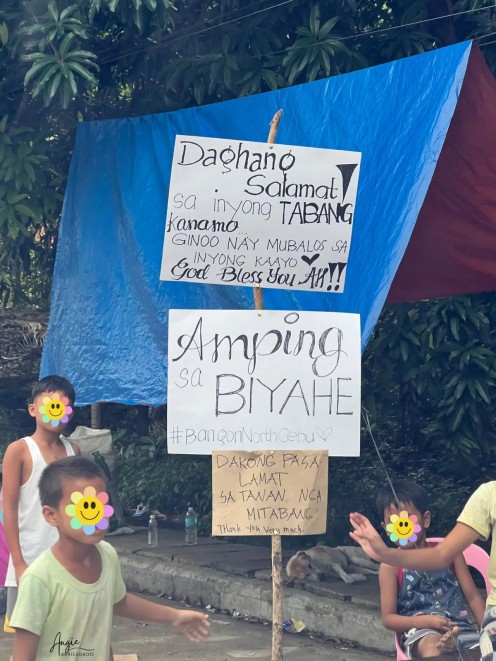 Daghang
Salamat!
sa inyong TABANG
Kanamo
GINOO NÄY MUBALOS SA
INYONG KAAYO
God Bless You All!!
Amping
sa BIYAHE
#BangonNorthCebu
DAKONG PASA
LAMAT
SA TANAN NGA
MITABANG
Thank you very much.
Angie